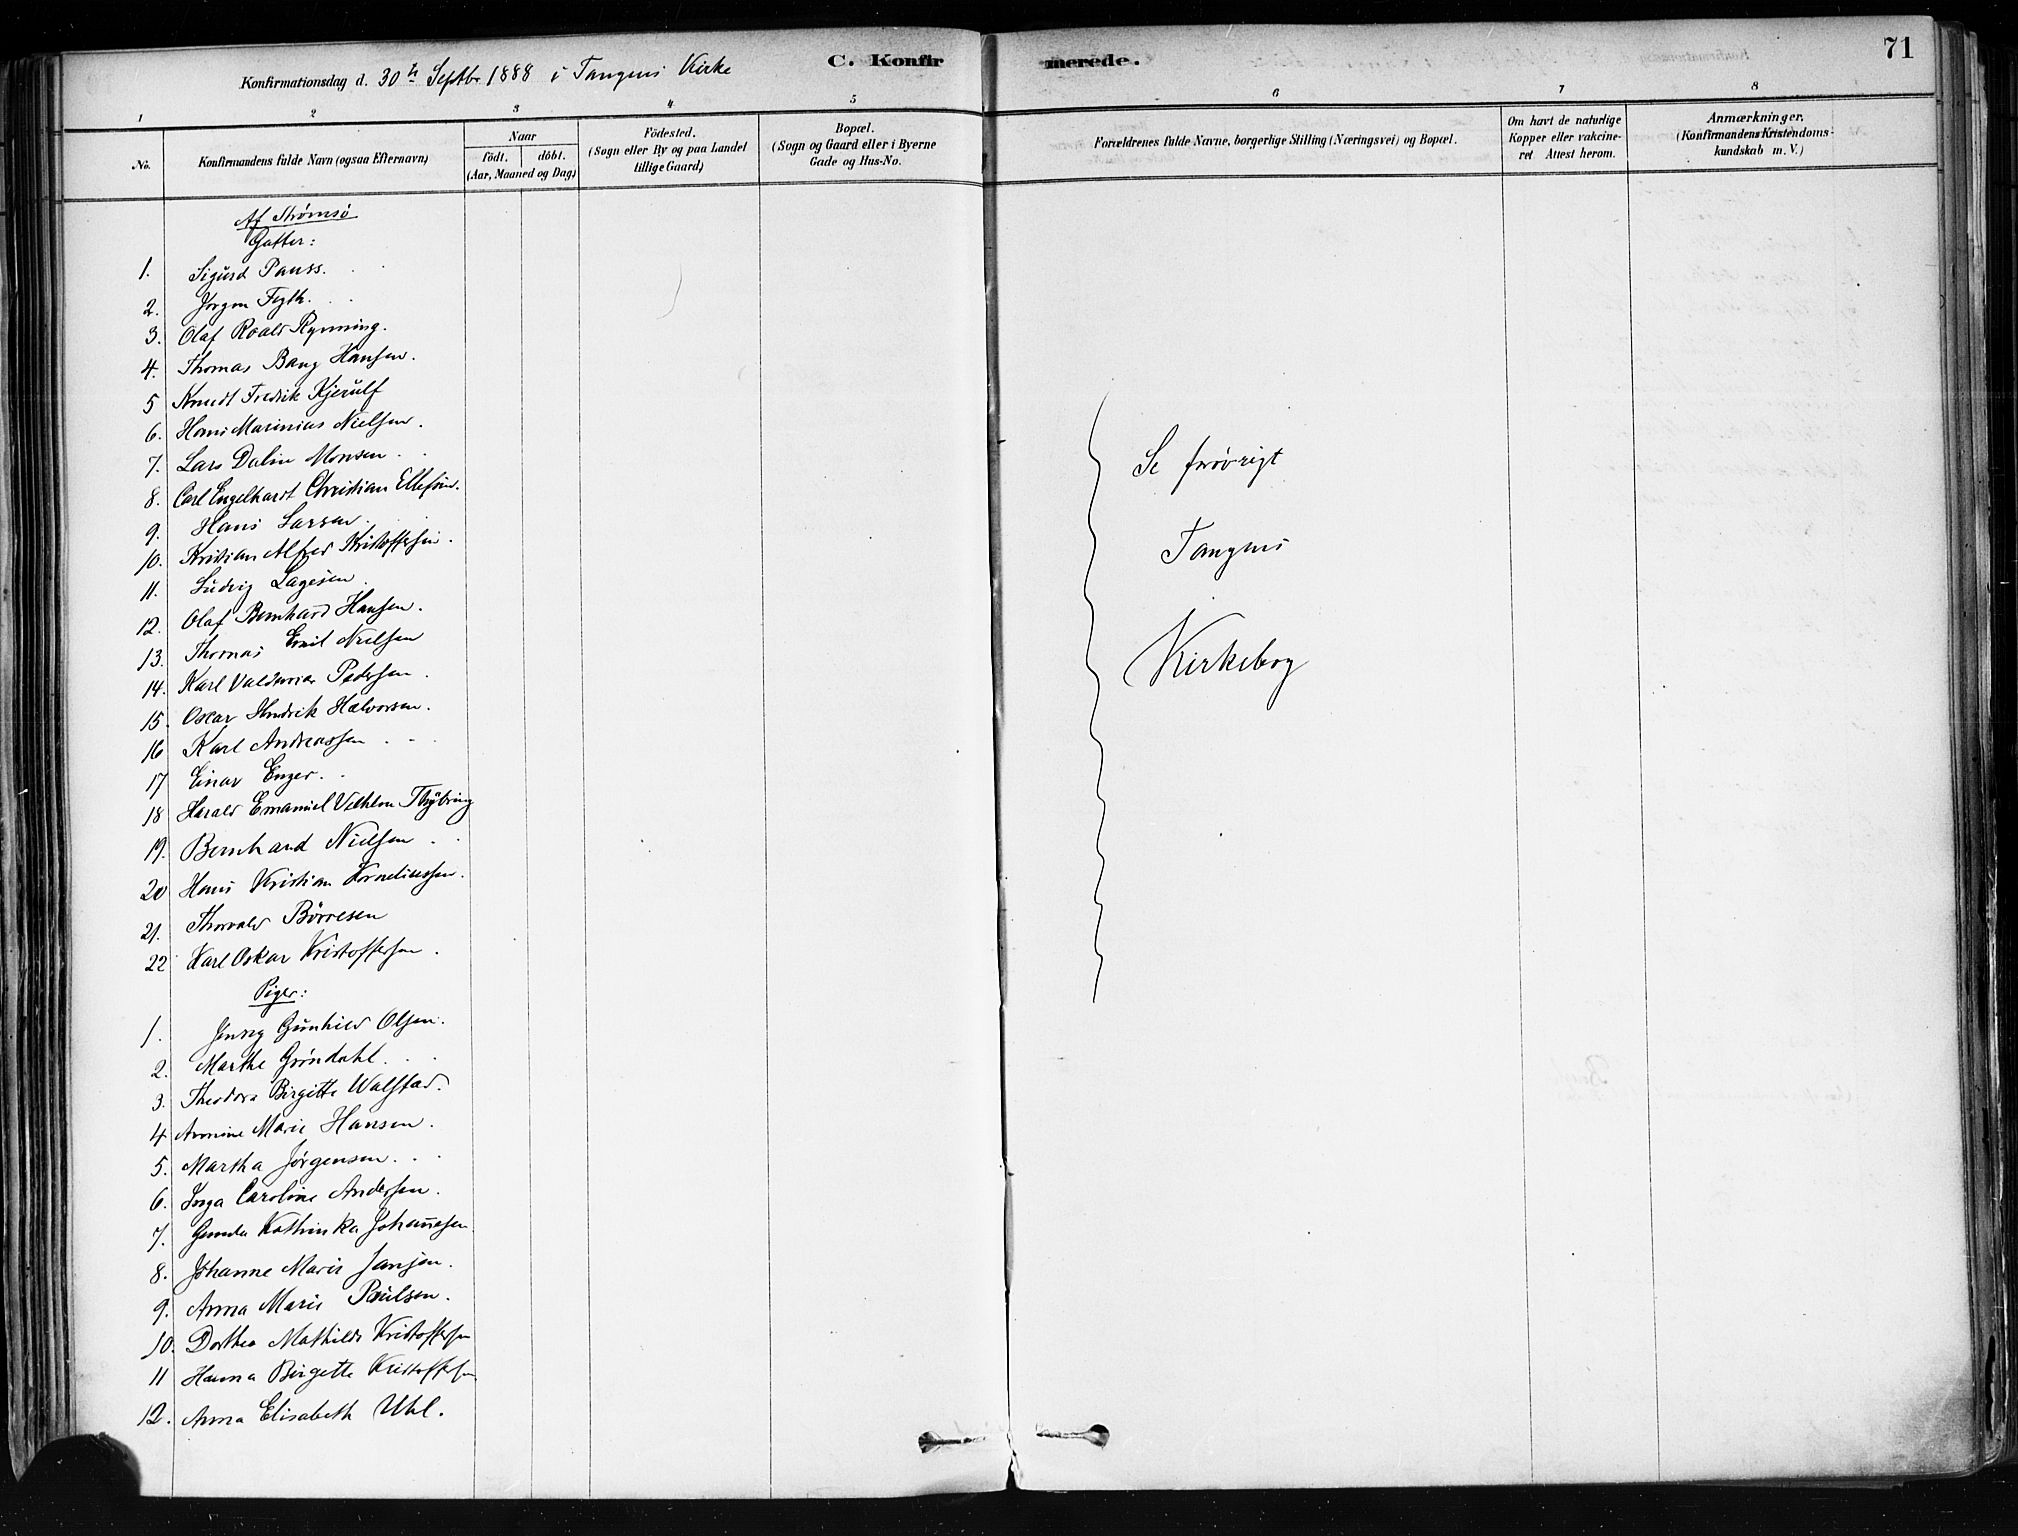 71
C. Konfirmerede.
Konfirmationsdag d. 30te Septbr 1888 i Tangens Kirke
1 2 3 4 5 6 7 8
No.
Konfirmandens fulde Navn (ogsaa Efternavn)
Naar
födt. döbt.
(Aar, Maaned og Dag)
Födested.
(Sogn eller By og paa Landet
tillige Gaard)
Bopæl.
(Sogn og Gaard eller i Byerne
Gade og Hus-No.
Forældrenes fulde Navne, borgerlige Stilling (Næringsvei) og Bopæl.
Om havt de naturlige
Kopper eller vakcine-
ret Attest herom.
Anmærkninger.
(Konfirmandens Kristendoms-
kundskab m. V.)
Af Strømsø
Gutter:
1. Sigurd Pauss.
2. Jörgen Fegth.
3. Olaf Roald Rynning.
4. Thomas Bang Hansen.
5 Knudt Fredrik Kjerulf
6. Hans Marinius Nielsen.
7. Lars Dalin Monsen.
8. Carl Engelhardt Christian Ellefsen.
9. Hans Larsen.
10. Kristian Alfred Kristoffersen.
11. Ludvig Lagesen.
12. Olaf Bernhard Hansen.
13. Thomas Emil Nielsen
14. Karl Valdemar Pedersen.
15. Oscar Hendrik Halvorsen.
16 Karl Andreassen
17 Einar Enger.
18 Harald Emanuel Thybring
19. Bernhard Nielsen
20 Hans Kristian Korneliussen.
21. Thorvald Börresen
22 Karl Oskar Kristoffersen.
Piger:
1. Jenny Gunhild Olsen.
2. Marthe Gröndahl.
3. Theodora Birgitte Walstad.
4 Annine Marie Hansen.
5. Martha Jörgensen.
6. Inga Caroline Andersen.
7. Gunda Kathinka Johannesen
8. Johanne Marie Jansen.
9. Anna Marie Paulsen.
10. Dorthea Mathilde Kristoffersen
11 Hanna Birgette Kristoffersen
12. Anna Elisabeth Uhl.
Se forøvrigt
Tangens
Kirkebog